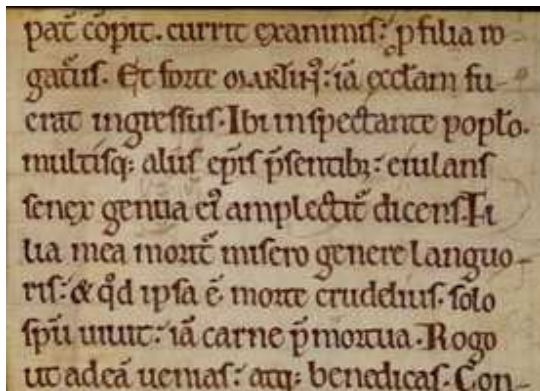 pat̄ cōpit. currit exanimis: ꝓ filia ro-
gatus. Et forte MARTINꝰ: iā ęcctam fu-
erat ingressus. Ibi inspectante popto.
multisq: aliis ep̄is p̄sentibꝫ: eiulans
senex genua eiꝰ amplectit̄ dicens. Fi
lia mea morit̄ misero genere languo-
ris: & qd̄ ipsa ē morte crudelius. solo
sp̄u uiuit: iā carne p̄mortua. Rogo
ut adeā uenias: atq: benedicas. Con-